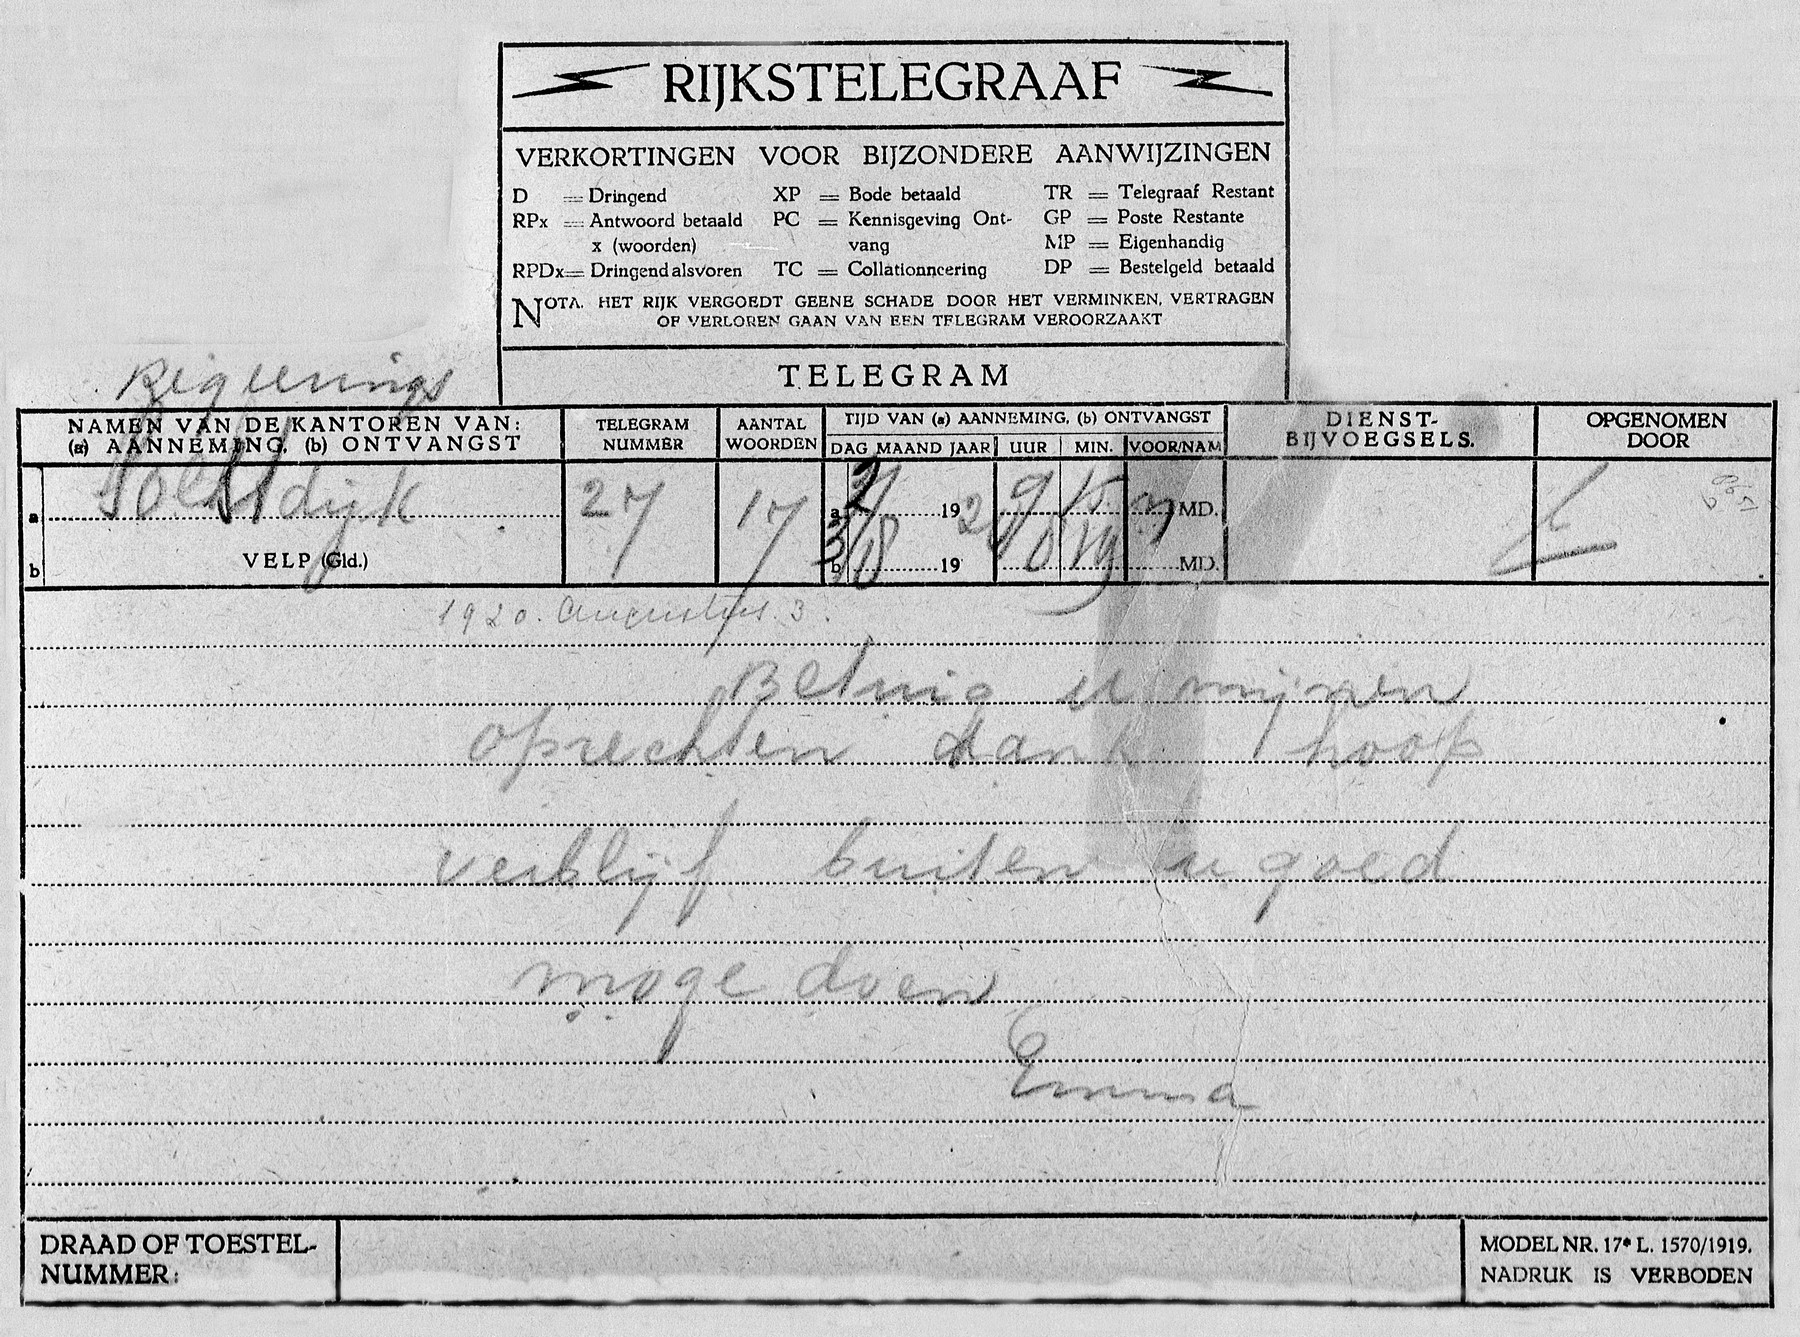 RIJKSTELEGRAAF
VERKORTINGEN VOOR BIJZONDERE AANWIJZINGEN
D = Dringend XP = Bode betaald TR = Telegraaf Restant
RPx = Antwoord betaald PC = Kennisgeving Ont- GP = Poste Restante
x (woorden) vang MP = Eigenhandig
RPDx= Dringend alsvoren TC = Collationneering DP = Bestelgeld betaald
NOTA. HET RIJK VERGOEDT GEENE SCHADE DOOR HET VERMINKEN, VERTRAGEN
OF VERLOREN GAAN VAN EEN TELEGRAM VEROORZAAKT
TELEGRAM
Regeerings
NAMEN VAN DE KANTOREN VAN: TELEGRAM AANTAL TIJD VAN (a) AANNEMING, (b) ONTVANGST DIENST- OPGENOMEN
(a) AANNEMING, (b) ONTVANGST NUMMER WOORDEN DAG MAAND JAAR UUR MIN. VOOR/NAM BIJVOEGSELS. DOOR
a Soestdijk 27 17 a 2/8 19 20 9 15 n MD.
b VELP (Gld.) b 3/8 19 8 MD.
1920. Augustus 3.
Betuig u mijnen
oprechten dank hoop
verblijf buiten u goed
moge doen
Emma
DRAAD OF TOESTEL-
NUMMER:
MODEL NR. 17* L. 1570/1919.
NADRUK IS VERBODEN